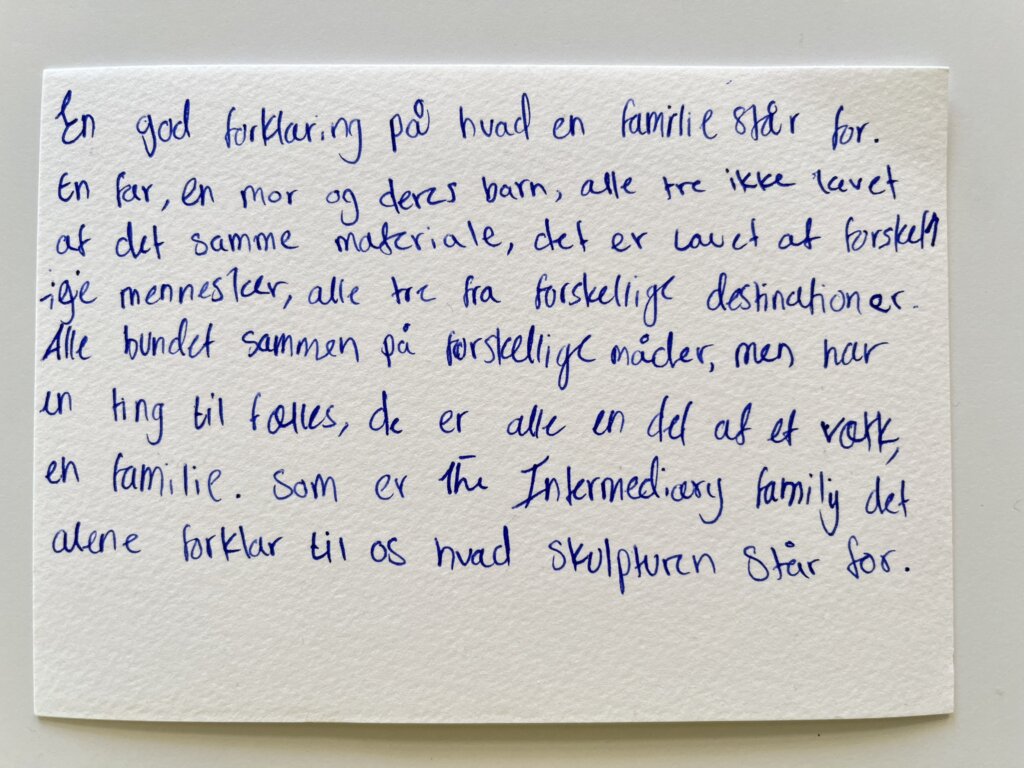 En god forklaring på hvad en familie står for.
En far, en mor og deres barn, alle tre ikke lavet
af det samme materiale, det er lavet af forskell
-ige mennesker, alle tre fra forskellige destinationer.
Alle bundet sammen på forskellige måder, men har
en ting til fælles, de er alle en del af et værk,
en familie. Som er the Intermediary family det
alene forklar til os hvad skulpturen står for.